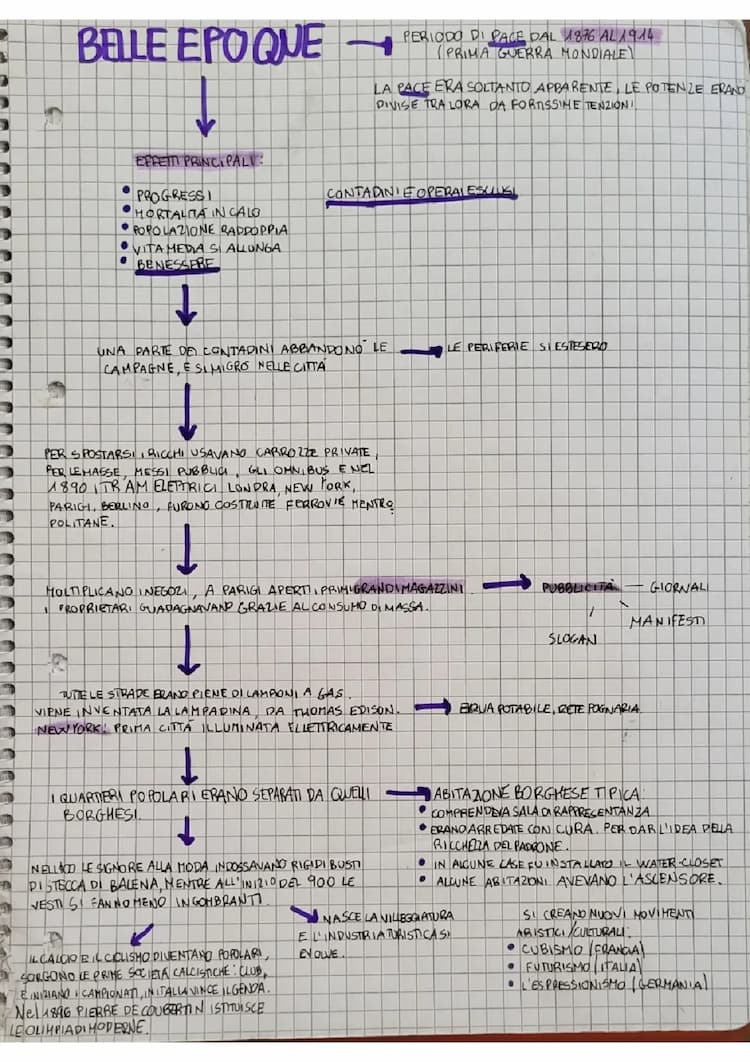 BELLE EPOQUE
PERIODO DI PACE DAL 1876 AL 1914
(PRIMA GUERRA MONDIALE)
LA PACE ERA SOLTANTO APPARENTE, LE POTENZE ERANO
DIVISE TRA LORA DA FORTISSIME TENZIONI.
EFFETTI PRINCIPALI:
• PROGRESSI
• MORTALITÀ IN CALO
• POPOLAZIONE RADDOPPIA
• VITA MEDIA SI ALLUNGA
• BENESSERE
CONTADINI E OPERAI ESCLUSI
UNA PARTE DEI CONTADINI ABBANDONÒ LE
CAMPAGNE, E SI MIGRÒ NELLE CITTÀ
LE PERIFERIE SI ESTESERO
PER SPOSTARSI, I RICCHI USAVANO CARROZZE PRIVATE,
PER LE MASSE, MESSI PUBBLICI, GLI OMNIBUS E NEL
1890 I TRAM ELETTRICI LONDRA, NEW YORK,
PARIGI, BERLINO, FURONO COSTRUITE FERROVIE MENTRO
POLITANE.
MOLTIPLICANO I NEGOZI, A PARIGI APERTI I PRIMI GRANDI MAGAZZINI
I PROPRIETARI GUADAGNAVANO GRAZIE AL CONSUMO DI MASSA.
PUBBLICITÀ — GIORNALI
MANIFESTI
SLOGAN
TUTTE LE STRADE ERANO PIENE DI LAMPONI A GAS.
VIENE INVENTATA LA LAMPADINA, DA THOMAS EDISON.
NEW YORK: PRIMA CITTÀ ILLUMINATA ELLETTRICAMENTE
POTABILE, RETE FOGNARIA
I QUARTIERI POPOLARI ERANO SEPARATI DA QUELLI
BORGHESI.
ABITAZIONE BORGHESE TIPICA:
• COMPRENDEVA SALA DI RAPPRESENTANZA
• ERANO ARREDATE CON CURA. PER DAR L'IDEA DELLA
RICCHEZZA DEL PADRONE.
• IN ALCUNE CASE FU INSTALLATO IL WATER-CLOSET
• ALCUNE ABITAZIONI AVEVANO L'ASCENSORE.
LE SIGNORE ALLA MODA INDOSSAVANO RIGIDI BUSTI
DI STECCA DI BALENA, MENTRE ALL'INIZIO DEL 900 LE
VESTI SI FANNO MENO INGOMBRANTI.
NASCE LA VILLEGGIATURA
E L'INDUSTRIA TURISTICA SI
EVOLVE.
SI CREANO NUOVI MOVIMENTI
ARISTICI/CULTURALI:
• CUBISMO (FRANCIA)
• FUTURISMO (ITALIA)
• L'ESPRESSIONISMO (GERMANIA)
IL CALCIO E IL CICLISMO DIVENTANO POPOLARI,
SORGONO LE PRIME SOCIETÀ CALCISTICHE: CLUB,
E INIZIANO I CAMPIONATI, IN ITALIA VINCE IL GENOA.
Nel 1896 PIERRE DE COUBERTIN ISTITUISCE
LE OLIMPIADI MODERNE.